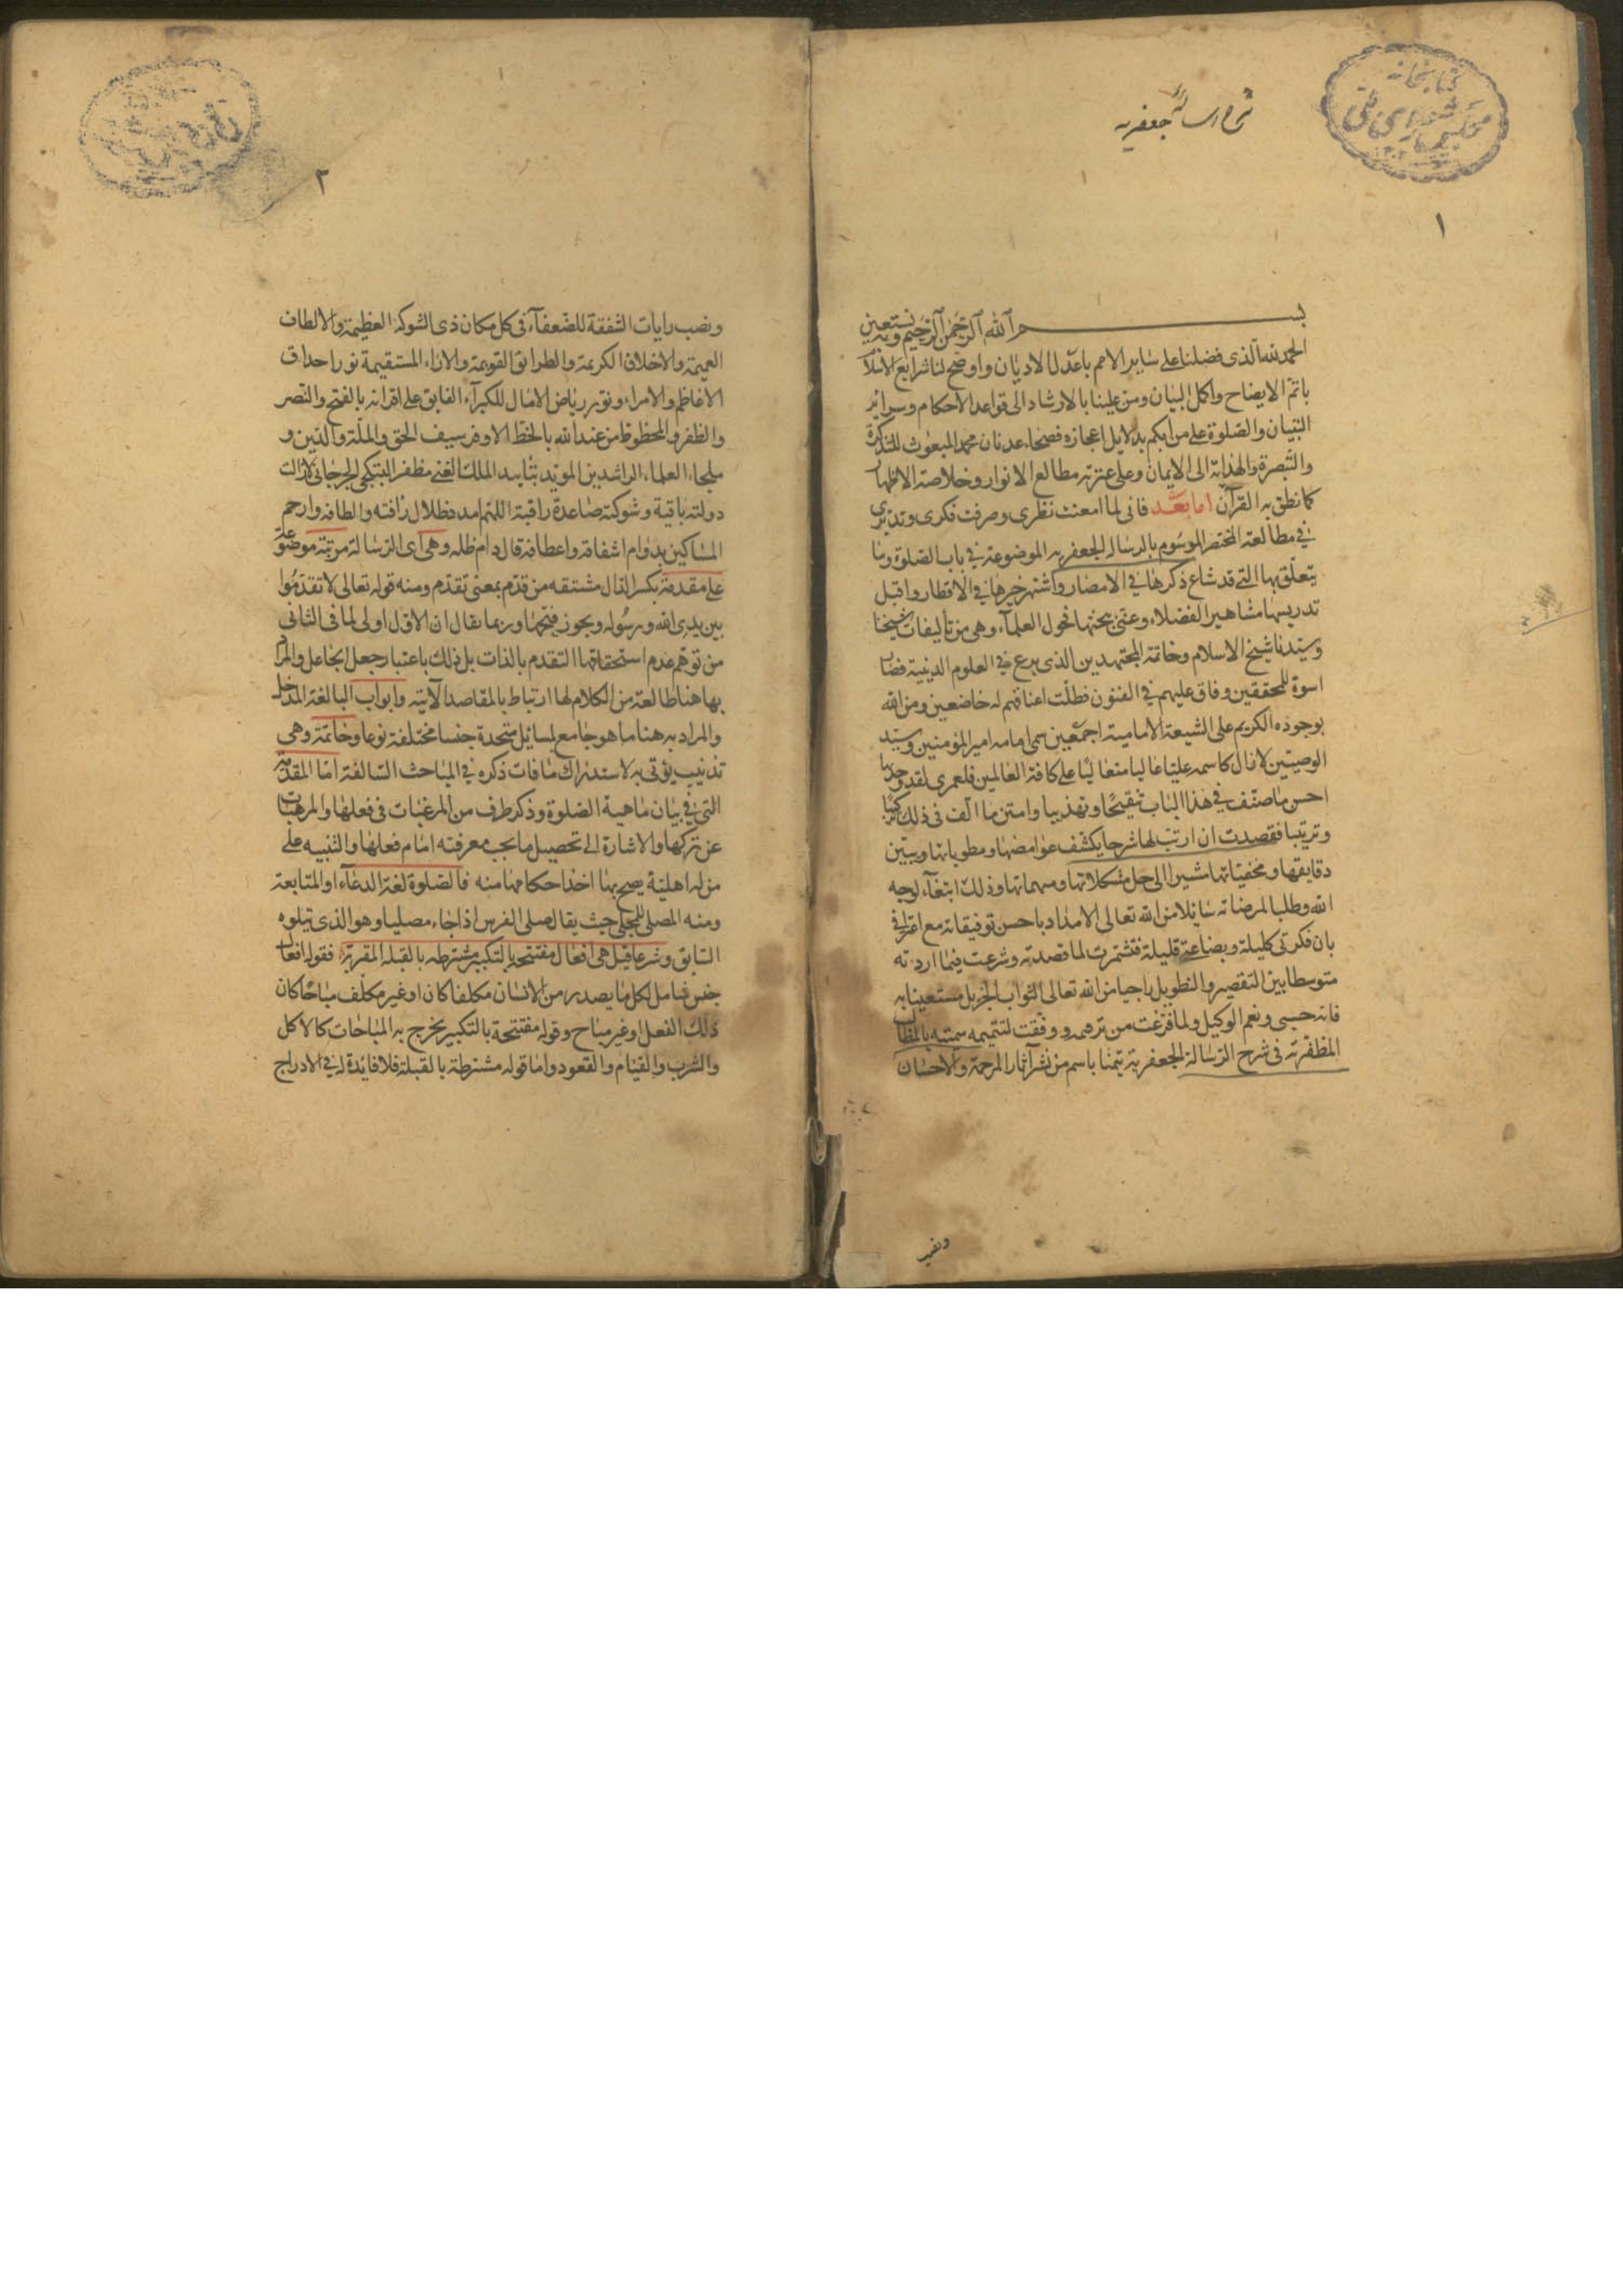 شرح رسالهٔ جعفریه
کتابخانه
مجلس شورای ملی
١
بسم الله الرحمن الرحیم وبه نستعین
الحمد لله الذی فضلنا علی سایر الامم باعدل الادیان واوضح لنا شرایع الاسلام
باتم الایضاح واکمل البیان ومن علینا بالارشاد الی قواعد الاحکام وسرائر
التبیان والصلوة علی من ابکم بدلایل اعجازه فصحاء عدنان محمد المبعوث للتذکرة
والتبصرة والهدایة الی الایمان وعلی عترته مطالع الانوار وخلاصة الاطهار
کما نطق به القرآن اما بعد فانی لما امعنت نظری وصرفت فکری وتدبری
فی مطالعة المختصر الموسوم بالرسالة الجعفریه الموضوعة فی باب الصلوة وما
یتعلق بها التی قد شاع ذکرها فی الامصار واشتهر خبرها فی الاقطار واقبل
تدریسها مشاهیر الفضلاء وعنی ببحثها فحول العلمآء وهی من تألیفات شیخنا
وسیدنا شیخ الاسلام وخاتمة المجتهدین الذی برع فی العلوم الدینیة فصار
اسوة للمحققین وفاق علیهم فی الفنون فظلت اعناقهم له خاضعین ومن الله
بوجوده الکریم علی الشیعة الامامیة اجمعین سمی امامه امیر المؤمنین وسید
الوصیین لازال کاسمه علیا غالبا متعالیا علی کافة العالمین فلعمری لقد وجدتها
احسن ما صنف فی هذا الباب تنقیحا وتهذیبا وامتن ما الف فی ذلک ترکیبا
وترتیبا فقصدت ان ارتب لها شرحا یکشف غوامضها ومطویاتها ویبین
دقایقها ومخفیاتها مشیرا الی حل مشکلاتها ومبهماتها وذلک ابتغآء لوجه
الله وطلبا لمرضاته سائلا من الله تعالی الامداد باحسن توفیقاته مع اعترافی
بان فکرتی کلیلة وبضاعتی قلیلة فتشمرت لما قصدته وشرعت فیما اردته
متوسطا بین التقصیر والتطویل راجیا من الله تعالی الثواب الجزیل مستعینا به
فانه حسبی ونعم الوکیل ولما فرغت من ترقیمه ووفقت لتتمیمه سمیته بالمطالب
المظفریة فی شرح الرسالة الجعفریة تیمنا باسم من نشر آثار المرحمة والاحسان
ونصب
٢
ونصب رایات الشفقة للضعفآء فی کل مکان ذی الشوکة العظیمة والالطاف
العمیمة والاخلاق الکریمة والطرائق القویمة والاراء المستقیمة نور احداق
الاعاظم والامراء ونور ریاض الامال للکبرآء الفایق علی اقرانه بالفتح والنصر
والظفر والمحظوظ من عند الله بالحظ الاوفر سیف الحق والملة والدین و
ملجاء العلماء الراشدین الموید بتایید الملک الغنی مظفر البتکچی الجرجانی لازالت
دولته باقیة وشوکته صاعدة راقبة اللهم امد ظلال رأفته والطافه وارحم
المساکین بدوام اشفاقه واعطافه قال دام ظله وهی ای الرسالة مرتبة موضوعة
علی مقدمة بکسر الدال مشتقه من قدم بمعنی تقدم ومنه قوله تعالی لا تقدموا
بین یدی الله ورسوله ویجوز فتحها وربما یقال ان الاول اولی لما فی الثانی
من توهم عدم استحقاقها التقدم بالذات بل ذلک باعتبار جعل الجاعل والمراد
بها هنا طائفة من الکلام لها ارتباط بالمقاصد الآتیة وابواب الباب لغة المدخل
والمراد به هنا ما هو جامع لمسائل متحدة جنسا مختلفة نوعا وخاتمة وهی
تذنیب یؤتی به لاستدراک ما فات ذکره فی المباحث السالفة اما المقدمة
التی فی بیان ماهیة الصلوة وذکر طرف من المرغبات فی فعلها والمرهبات
عن ترکها والاشارة الی تحصیل ما یجب معرفته امام فعلها والتنبیه علی
من له اهلیة یصح بها اخذ احکامها منه فالصلوة لغة الدعآء او المتابعة
ومنه المصلی للمجلی حیث یقال صلی الفرس اذا جاء مصلیا وهو الذی یتلوه
السابق وشرعا قیل هی افعال مفتتحة بالتکبیر مشترطة بالقبلة المقربة فقوله افعال
جنس شامل لکل ما یصدر من الانسان مکلفا کان او غیر مکلف مباحا کان
ذلک الفعل او غیر مباح وقوله مفتتحة بالتکبیر یخرج به المباحات کالاکل
والشرب والقیام والقعود واما قوله مشترطة بالقبلة فلا فائدة له فی الادراج